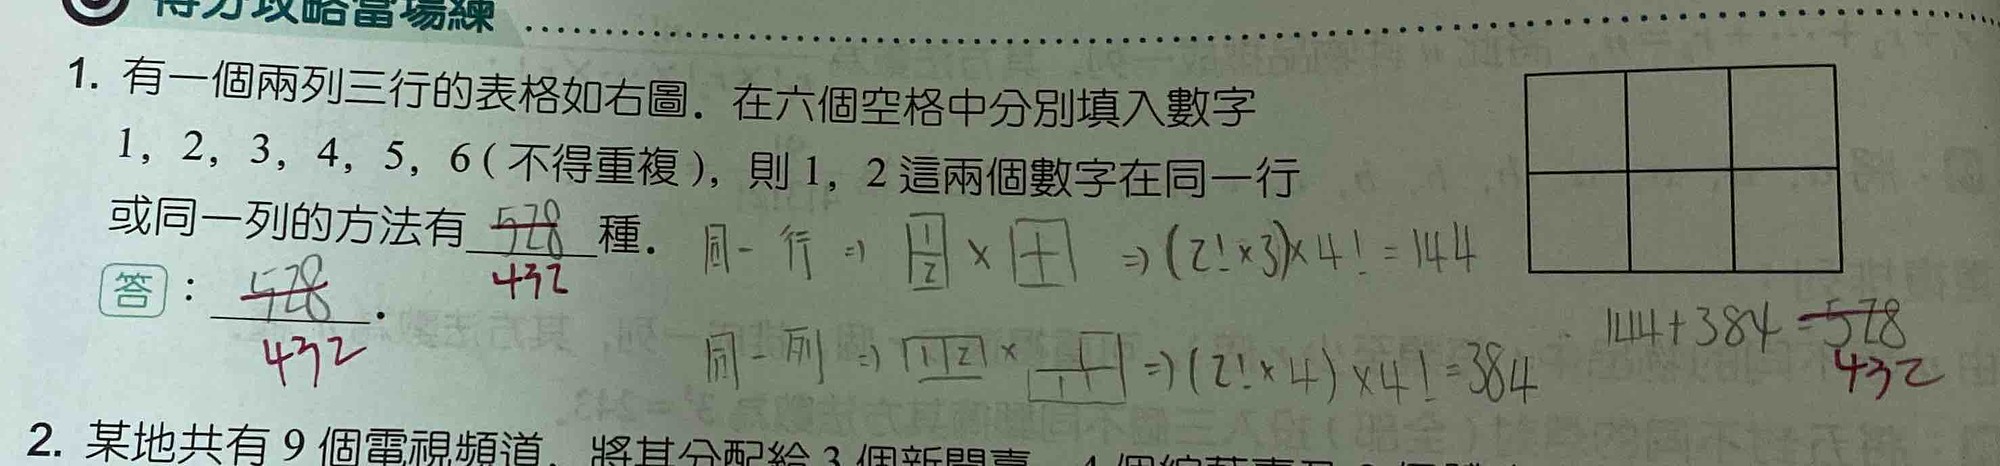 得分攻略當場練
1. 有一個兩列三行的表格如右圖．在六個空格中分別填入數字
1，2，3，4，5，6（不得重複），則 1，2 這兩個數字在同一行
或同一列的方法有 528 種．
432
同一行 ⇒ 1 2 × ⇒ (2!×3)×4! = 144
答：528．
432
同一列 ⇒ 1 2 × ⇒ (2!×4)×4! = 384
144+384 = 528
432
2. 某地共有 9 個電視頻道，將其分配給 3 個新聞臺、4 個綜藝臺及